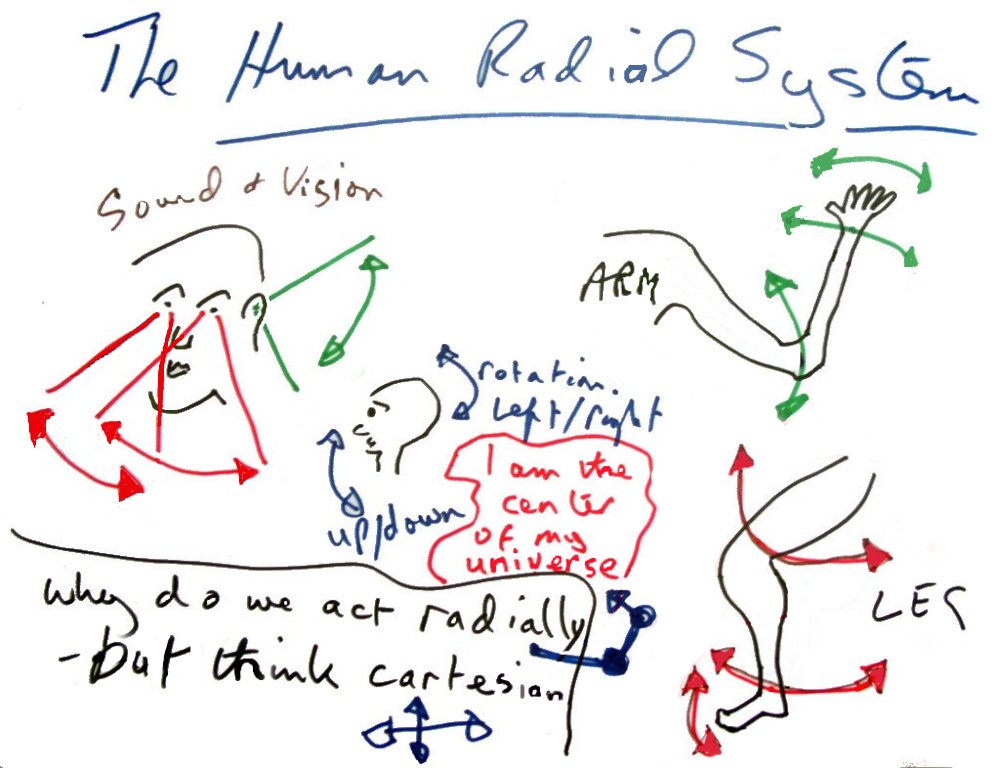 The Human Radial System
Sound & Vision
ARM
rotation.
Left/right
up/down
I am the
center
of my
universe
LEG
Why do we act radially
- but think cartesian